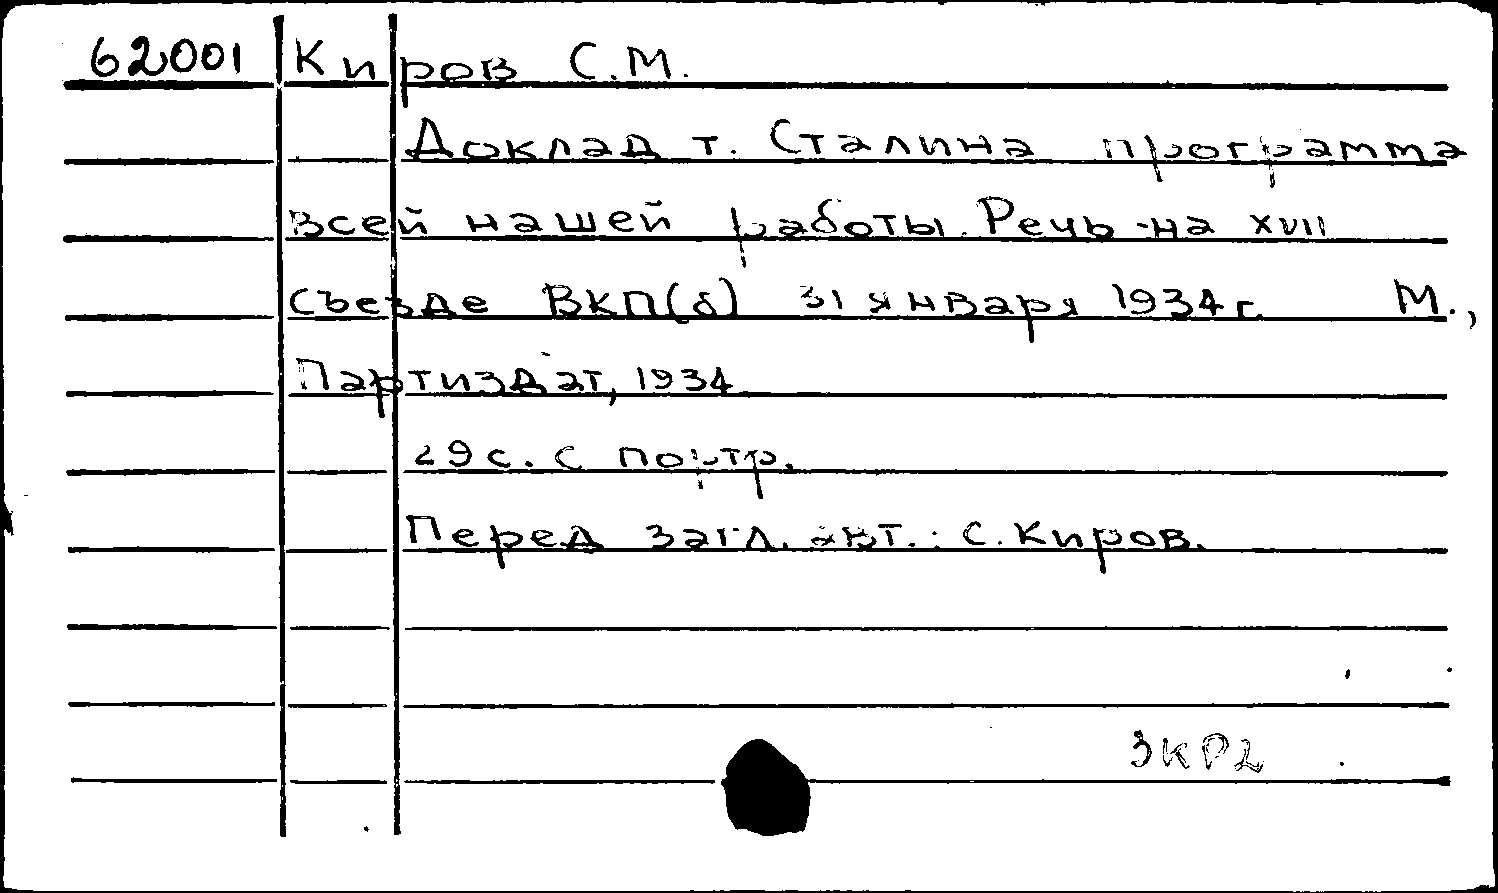 62001 Киров С.М.
Доклад т. Сталина программа
всей нашей работы. Речь на XVII
съезде ВКП(б) 31 января 1934г. М.,
Партиздат, 1934
29 с. с портр.
Перед загл. авт.: С. Киров.
3КР2